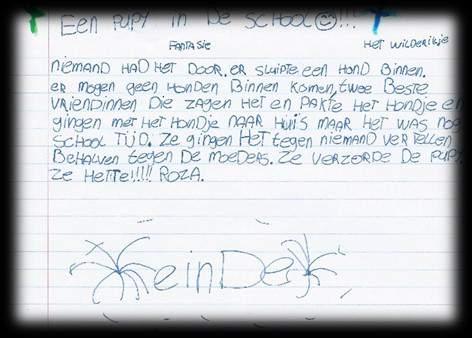 Een pupy in De school☺!!!
Fantasie Het wilderikje
niemand had het door. er sluipte een hond binnen.
er mogen geen honden binnen komen, twee beste
vriendinnen die zagen het en pakte het hondje en
gingen met het hondje naar huis maar het was nog
school tijd. ze gingen het tegen niemand vertellen
Behalven tegen de moeders. ze verzorde de pupy
ze hette!!!! Roza.
einde